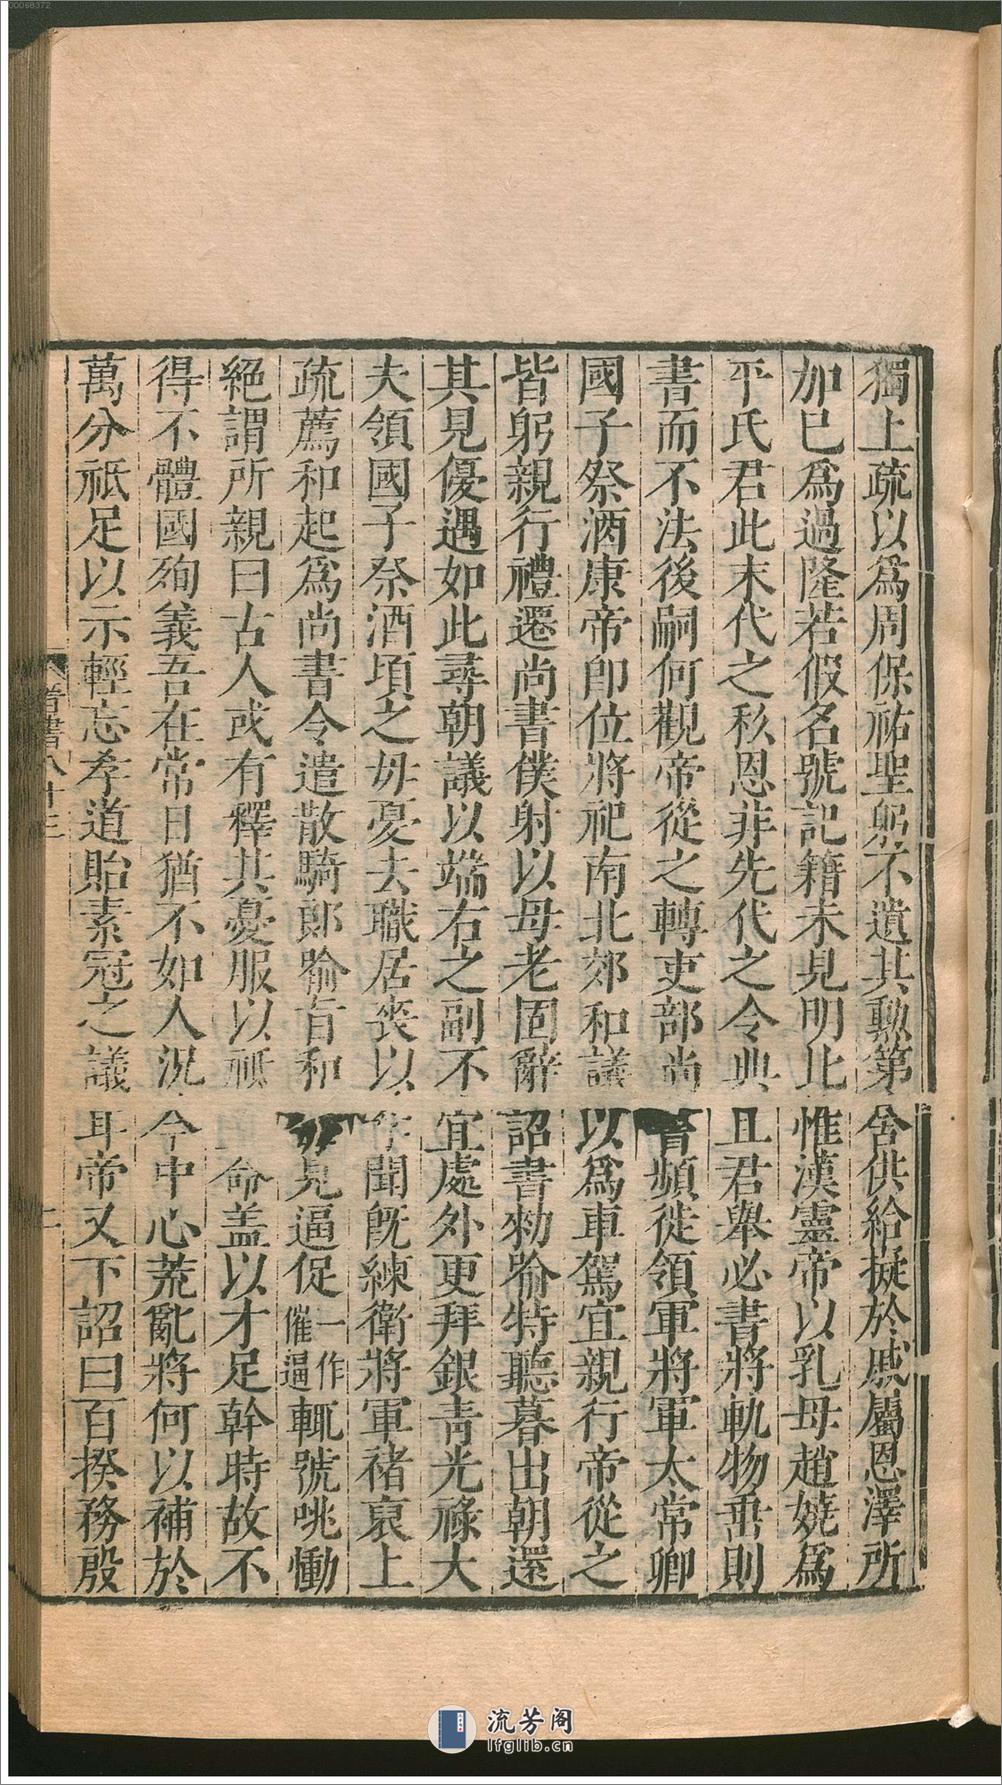 獨上疏以爲周保祐聖躬不遺其勲第舍供給擬於戚屬恩澤所
加巳爲過隆若假名號記籍未見明比惟漢靈帝以乳母趙嬈爲
平氏君此末代之私恩非先代之令典且君舉必書將軌物垂則
書而不法後嗣何觀帝從之轉吏部尚書頻徙領軍將軍太常卿
國子祭酒康帝即位將祀南北郊和議以爲車駕宜親行帝從之
皆躬親行禮遷尚書僕射以母老固辭詔書勑喻特聽暮出朝還
其見優遇如此尋朝議以端右之副不宜處外更拜銀青光祿大
夫領國子祭酒頃之毋憂去職居喪以孝聞旣練衛將軍禇裒上
疏薦和起爲尚書令遣散騎郎喻旨和每見逼促一作催逼輒號咷慟
絕謂所親曰古人或有釋其憂服以祗王命盖以才足幹時故不
得不體國殉義吾在常日猶不如人況今中心荒亂將何以補於
萬分祗足以示輕忘孝道貽素冠之議耳帝又下詔曰百揆務殷
晋書八十三
二
00068372
流芳阁
lfglib.cn